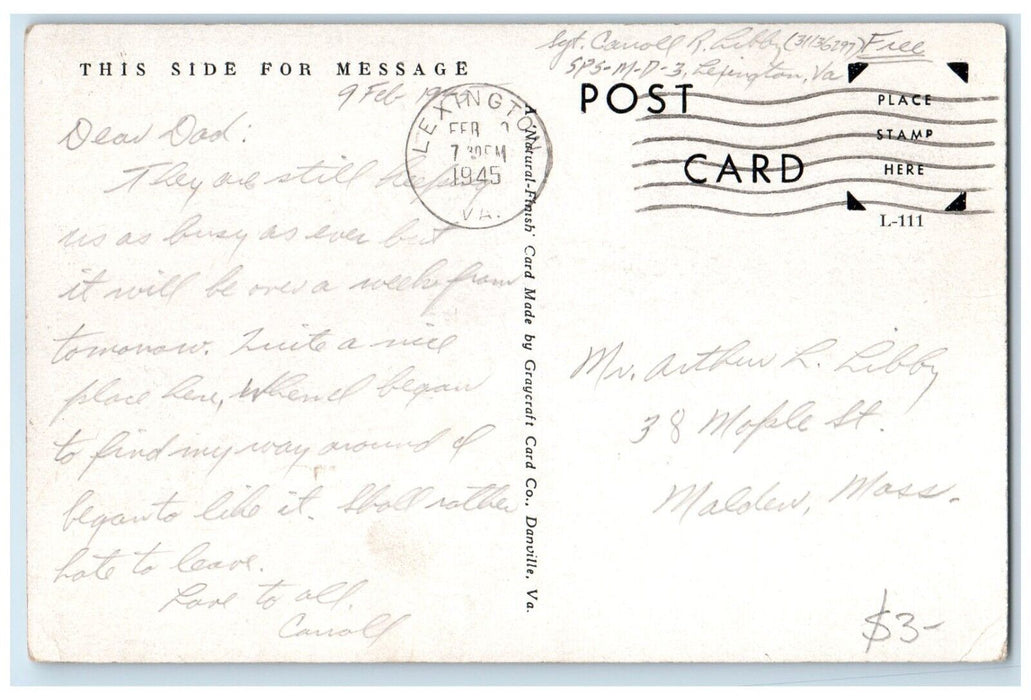 THIS SIDE FOR MESSAGE
9 Feb 1945
Dear Dad:
They are still keeping
us as busy as ever but
it will be over a week from
tomorrow. Quite a nice
place here, When I began
to find my way around I
began to like it. Shall rather
hate to leave.
Love to all,
Carroll
LEXINGTON
FEB 9
7 30 PM
1945
VA.
A 'Natural-Finish' Card Made by Graycraft Card Co., Danville, Va.
Sgt. Carroll R. Libby (31136297) Free
SPS-M-D-3, Lexington, Va
POST
CARD
PLACE
STAMP
HERE
L-111
Mr. Arthur L. Libby
38 Maple St.
Malden, Mass.
$3-